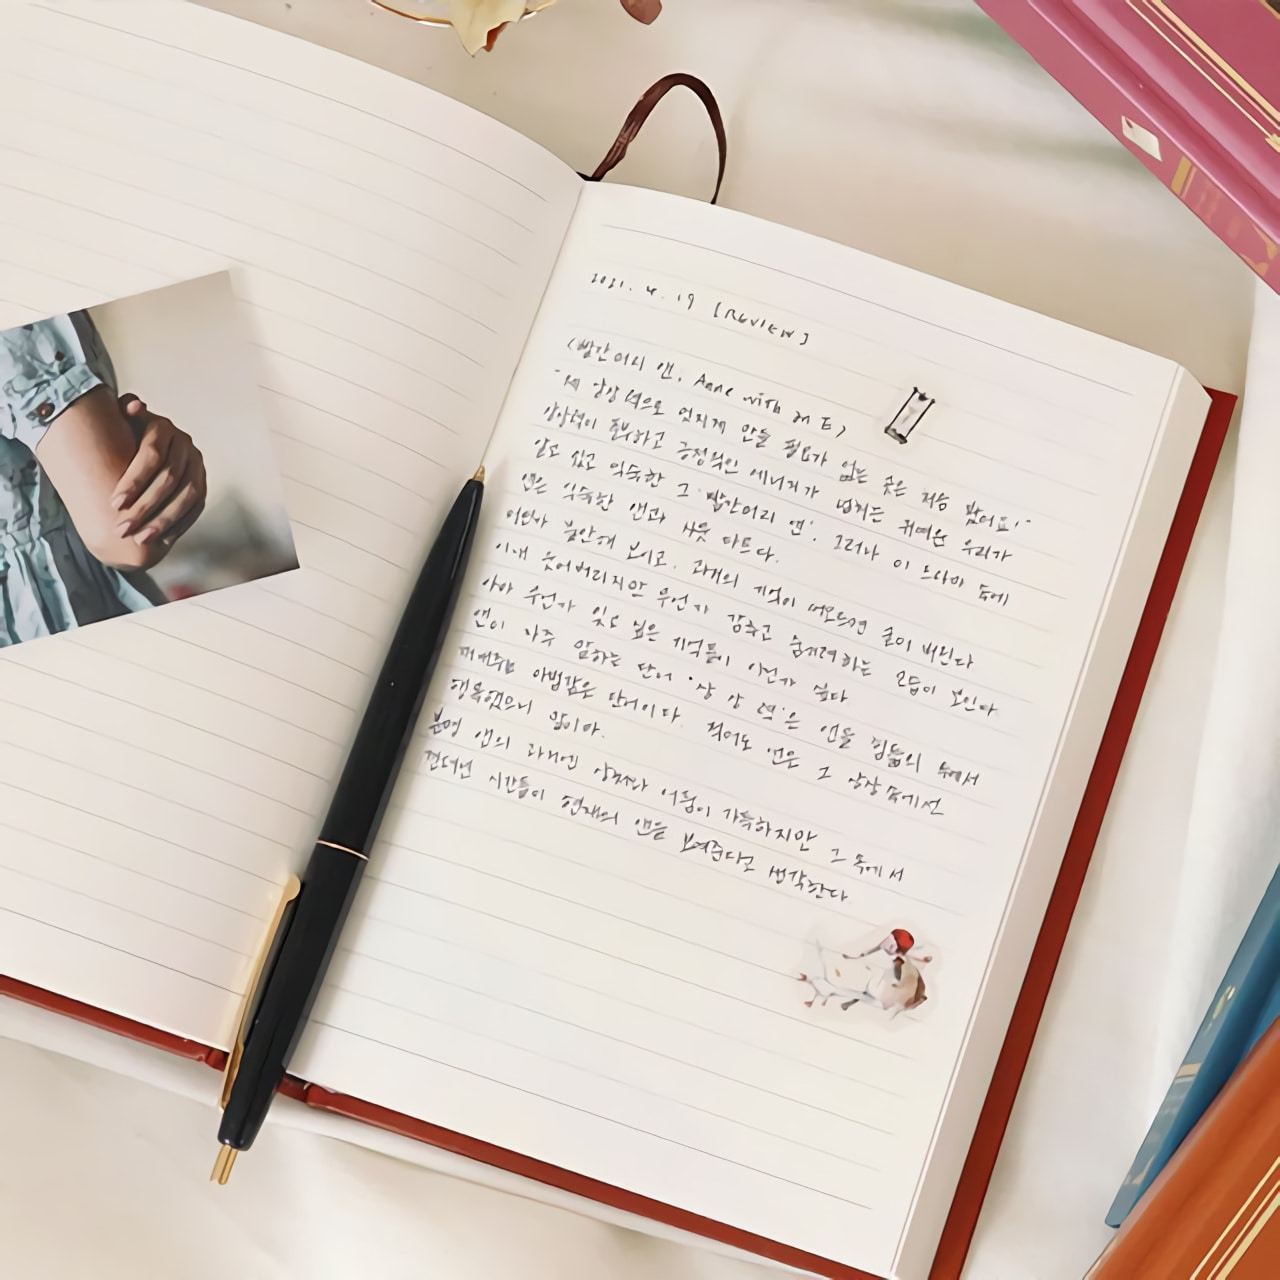 2021. 4. 19 [REVIEW]
<빨간머리 앤, Anne with an E>
"제 상상력으로 멋지게 만들 필요가 없는 곳은 처음 봤어요!"
상상력이 풍부하고 긍정적인 에너지가 넘치는 귀여운 우리가
알고 있고 익숙한 그 '빨간머리 앤'. 그러나 이 드라마 속에
앤은 익숙한 앤과 사뭇 다르다.
어딘가 불안해 보이고, 과거의 기억이 떠오르면 숨이 버린다
이내 웃어버리지만 무언가 감추고 숨기려 하는 모습이 보인다
아마 무언가 잊고 싶은 기억들이 있던가 싶다
앤이 자주 말하는 단어 '상상력'은 앤을 힘듦의 속에서
꺼내주는 마법같은 단어이다. 적어도 앤은 그 상상 속에선
행복했으니 말이야.
분명 앤의 과거엔 상처와 어둠이 가득하지만 그 속에서
견뎌낸 시간들이 현재의 앤을 보여준다고 생각한다